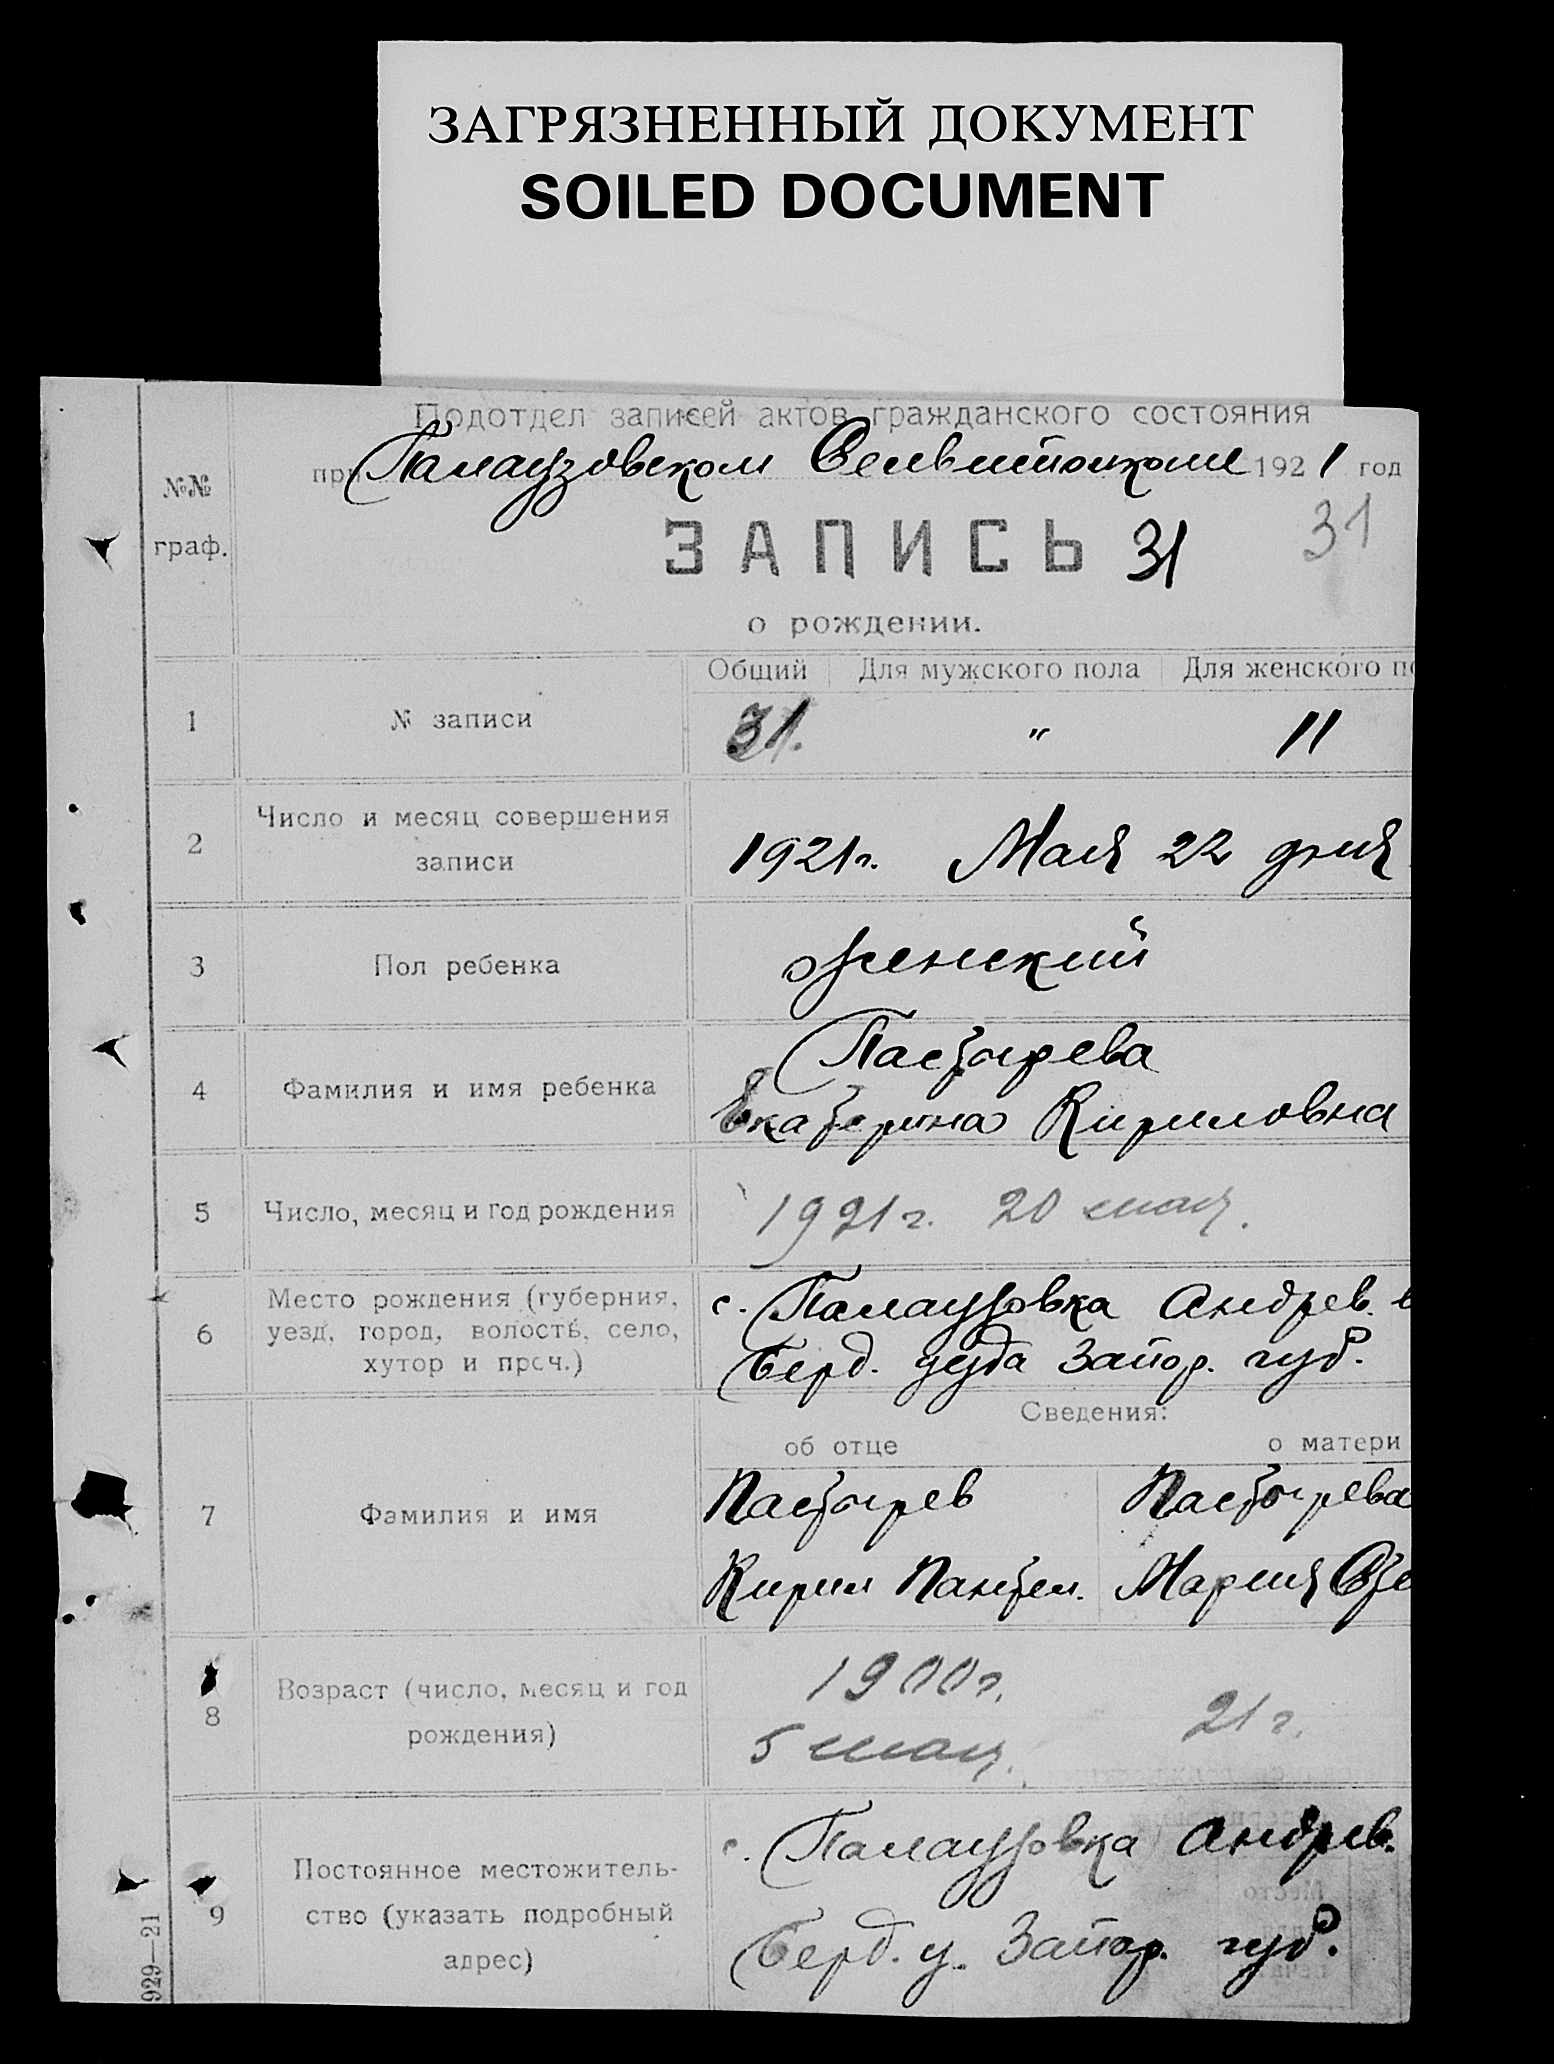 ЗАГРЯЗНЕННЫЙ ДОКУМЕНТ
SOILED DOCUMENT
Подотдел записей актов гражданского состояния
при Палаузовском Сельисполкоме 1921 год
№№
граф.
ЗАПИСЬ 31 31
о рождении.
Общий Для мужского пола Для женского по
1 № записи 31. " 11
2 Число и месяц совершения
записи 1921г. Мая 22 дня
3 Пол ребенка женский
4 Фамилия и имя ребенка Пастырева
Екатерина Кириловна
5 Число, месяц и год рождения 1921г. 20 мая.
6 Место рождения (губерния,
уезд, город, волость, село,
хутор и проч.)
с. Палаузовка Андрев. в
Берд. уезда Запор. губ.
Сведения:
об отце о матери
7 Фамилия и имя
Пастырев Пастырева
Кирил Пантел. Мария
8 Возраст (число, месяц и год
рождения)
1900г. 21г.
5 мая.
9 Постоянное местожитель-
ство (указать подробный
адрес)
с. Палаузовка Андрев.
Берд. у. Запор. губ.
929—21